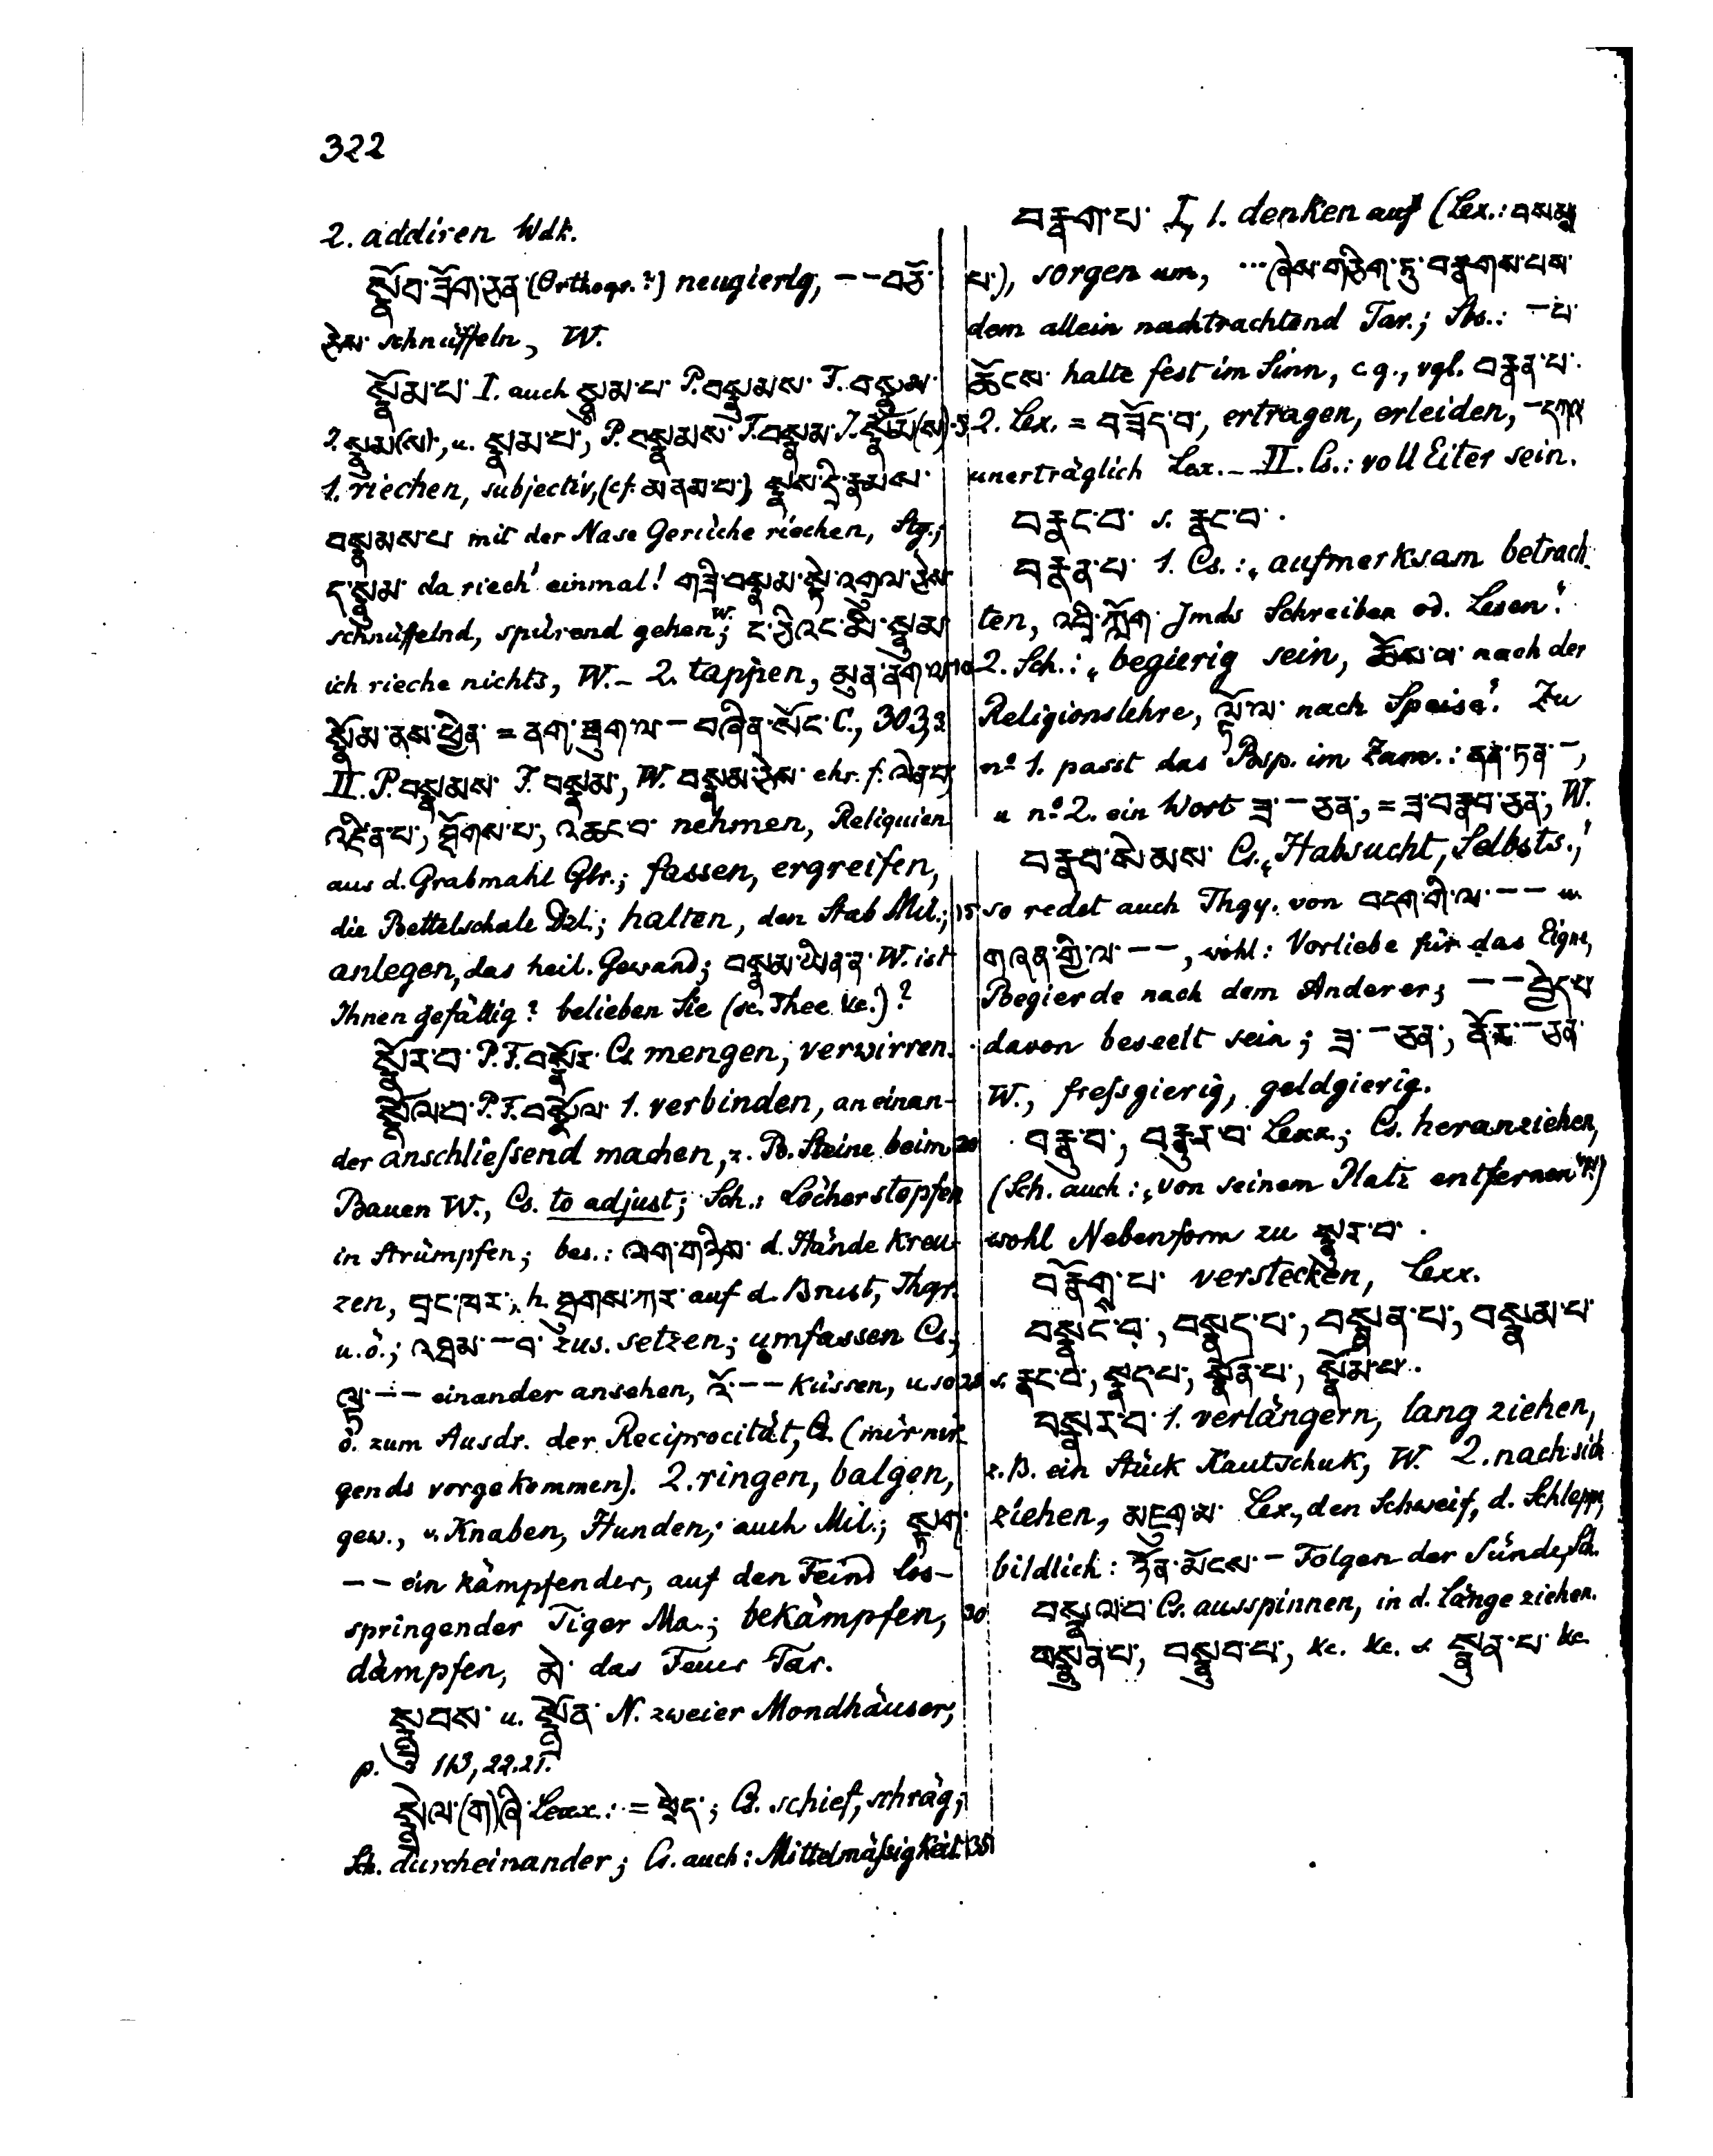 322
2. addiren Wdk.
སྣོབ་ཟློག་ཅན་ (Orthogr.?) neugierig, -- བཅོ་
ཅེས་ schnüffeln, W.
སྣོམ་པ་ I. auch སྣུམ་པ་ P. བསྣུམས་ F. བསྣུམ་
J. སྣུམ(ས)་, u. སྣམ་པ་, P. བསྣམས་ F. བསྣམ་ J. སྣོམ(ས)་
1. riechen, subjectiv, (cf. མནམ་པ་) སྣས་དྲི་རྣམས་
བསྣམས་པ mit der Nase Gerüche riechen, Stg.;
ད་སྣུམ་ da riech' einmal!
schnüffelnd, spürend gehen, W.; ང་ཅིའང་མི་སྣུམ
ich rieche nichts, W. – 2. tappen, མུན་ནག་ལ 10
སྣོམ་ནས་ཕྱིན་ = ནག་ཕྲུག་ལ – བཞིན་སོང་ C., 303,2
II. P. བསྣམས་ F. བསྣམ་, W. བསྣམ་ཅེས་ ehr. f. ལེན་པ,
འཛིན་པ་, ཐོགས་པ་, འཆང་བ་ nehmen, Reliquien
aus d. Grabmahl Glr.; fassen, ergreifen,
die Bettelschale Dzl.; halten, den Stab Mil.; 15
anlegen, das heil. Gewand; བསྣམ་ W. ist
Ihnen gefällig? belieben Sie (sc. Thee &c.)?
སྣོར་བ་ P. F. བསྣོར་ Cs. mengen, verwirren.
སྣོལ་བ་ P. F. བསྣོལ་ 1. verbinden, an einan-
der anschließend machen, z. B. Steine beim 20
Bauen W., Cs. to adjust; Sch.: Löcher stopfen
in Strümpfen; bes.: ལག་གཉིས་ d. Hände kreu-
zen, བྲང་ཁར་, h. ཐུགས་ཀར་ auf d. Brust, Thgr.
u. ö.; འཐམ་ – བ་ zus. setzen; umfassen Cs.;
ལྟ་ -- einander ansehen, འོ་ -- küssen, u. so 25
ö. zum Ausdr. der Reciprocität, Cs. (mir nir-
gends vorgekommen). 2. ringen, balgen,
gew., v. Knaben, Hunden; auch Mil.; སྟག་
-- ein kämpfender, auf den Feind los-
springender Tiger Ma.; bekämpfen, 30
dämpfen, མེ་ das Feuer Tar.
སྣྲུབས་ u. སྣྲོན་ N. zweier Mondhäuser,
p. 113, 22.21.
སྣྲེལ་(ག)ཞི་ Lexx.: = ཕྲེད་; Cs. schief, schräg;
Sch. durcheinander; Cs. auch: Mittelmäßigkeit. 35
བརྣག་པ་ I, 1. denken auf (Lex.: བསམ
པ་), sorgen um, ... ཞེས་གཅིག་ཏུ་བརྣགས་པས་
dem allein nachtrachtend Tar.; Sbs.: – པ་
halte fest im Sinn, c. g., vgl. བརྣན་པ་.
2. Lex. = བཟོད་བ་, ertragen, erleiden, – དཀའ
unerträglich Lex. – II. Cs.: voll Eiter sein.
བརྣང་བ་ s. རྣང་བ་.
བརྣན་པ་ 1. Cs.: „aufmerksam betrach-
ten, འདྲི་ཀློག་ Jmds Schreiben od. Lesen."
2. Sch.: „begierig sein, ཆོས་ལ་ nach der
Religionslehre, ལྟོ་ལ་ nach Speise." Zu
nº 1. passt das Bsp. im Zam.: ནན་ཏན་ –,
u nº 2. ein Wort ཟ་ – ཅན་, = ཟ་བརྣབ་ཅན་, W.
བརྣབ་སེམས་ Cs. „Habsucht, Selbsts.,"
so redet auch Thgy. von བདག་གི་ལ་ -- u.
གཞན་གྱི་ལ་ --, wohl: Vorliebe für das Eigne,
Begierde nach dem Anderer; -- བྱེད་པ
davon beseelt sein; ཟ་ – ཅན་, ནོར་ – ཅན་
W., freßgierig, geldgierig.
བརྣ་བ་, བརྣུར་བ་ Lexx.; Cs. heranziehen,
(Sch. auch: „von seinem Platz entfernen"?!)
wohl Nebenform zu སྣུར་བ་.
བརྣོག་པ་ verstecken, Lexx.
བསྣང་བ་, བསྣད་པ་, བསྣན་པ་, བསྣམ་པ་
s. རྣང་བ་, སྣད་པ་, སྣོན་པ་, སྣོམ་པ་.
བསྣར་བ་ 1. verlängern, lang ziehen,
z. B. ein Stück Kautschuk, W. 2. nach sich
ziehen, མཇུག་མ་ Lex., den Schweif, d. Schleppe,
bildlich: ཉོན་མོངས་ – Folgen der Sünde, Sch.
བསྣལ་བ་ Cs. ausspinnen, in d. Länge ziehen.
བསྣུན་པ་, བསྣུབ་པ་, &c. &c. s. སྣུན་པ་ &c.